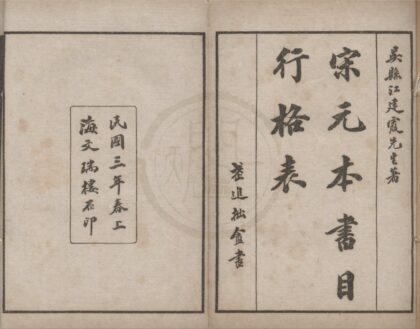 吳縣江建霞先生著
宋元本書目
行格表
民國三年春上
海文瑞樓石印